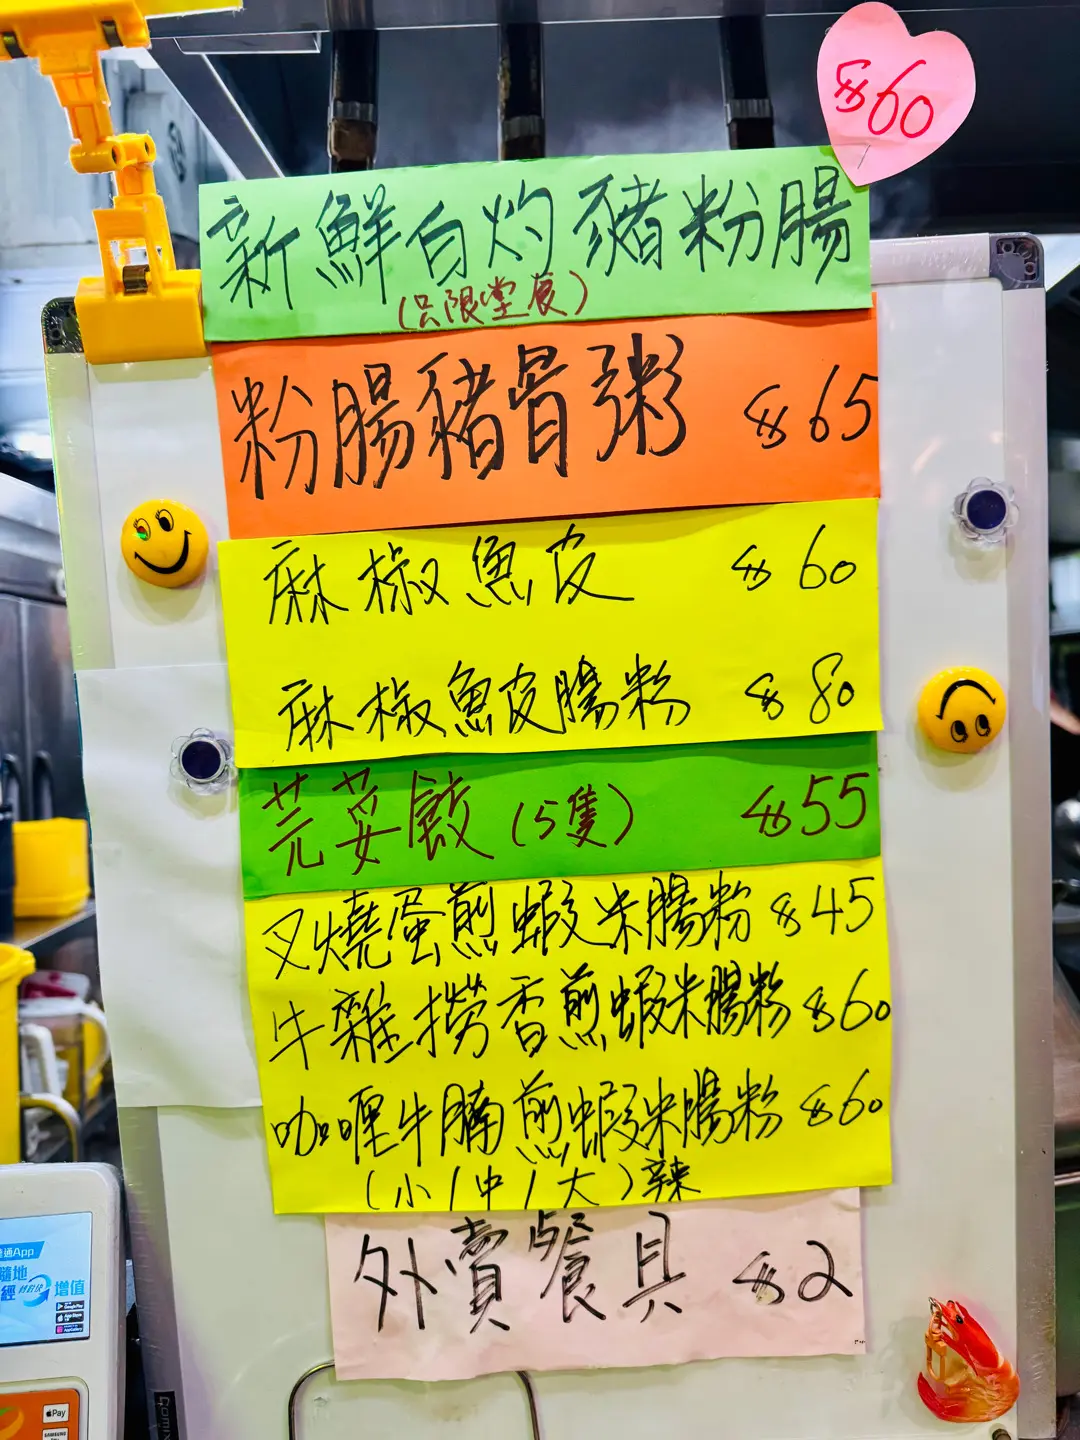 $60
新鮮白灼豬粉腸
(只限堂食)
粉腸豬骨粥 $65
麻椒魚皮 $60
麻椒魚皮腸粉 $80
芫茜餃(5隻) $55
叉燒蛋煎蝦米腸粉 $45
牛雜撈香煎蝦米腸粉 $60
咖喱牛腩煎蝦米腸粉 $60
(小/中/大)辣
外賣餐具 $2
通App
隨地
增值
Pay
SAMSUNG